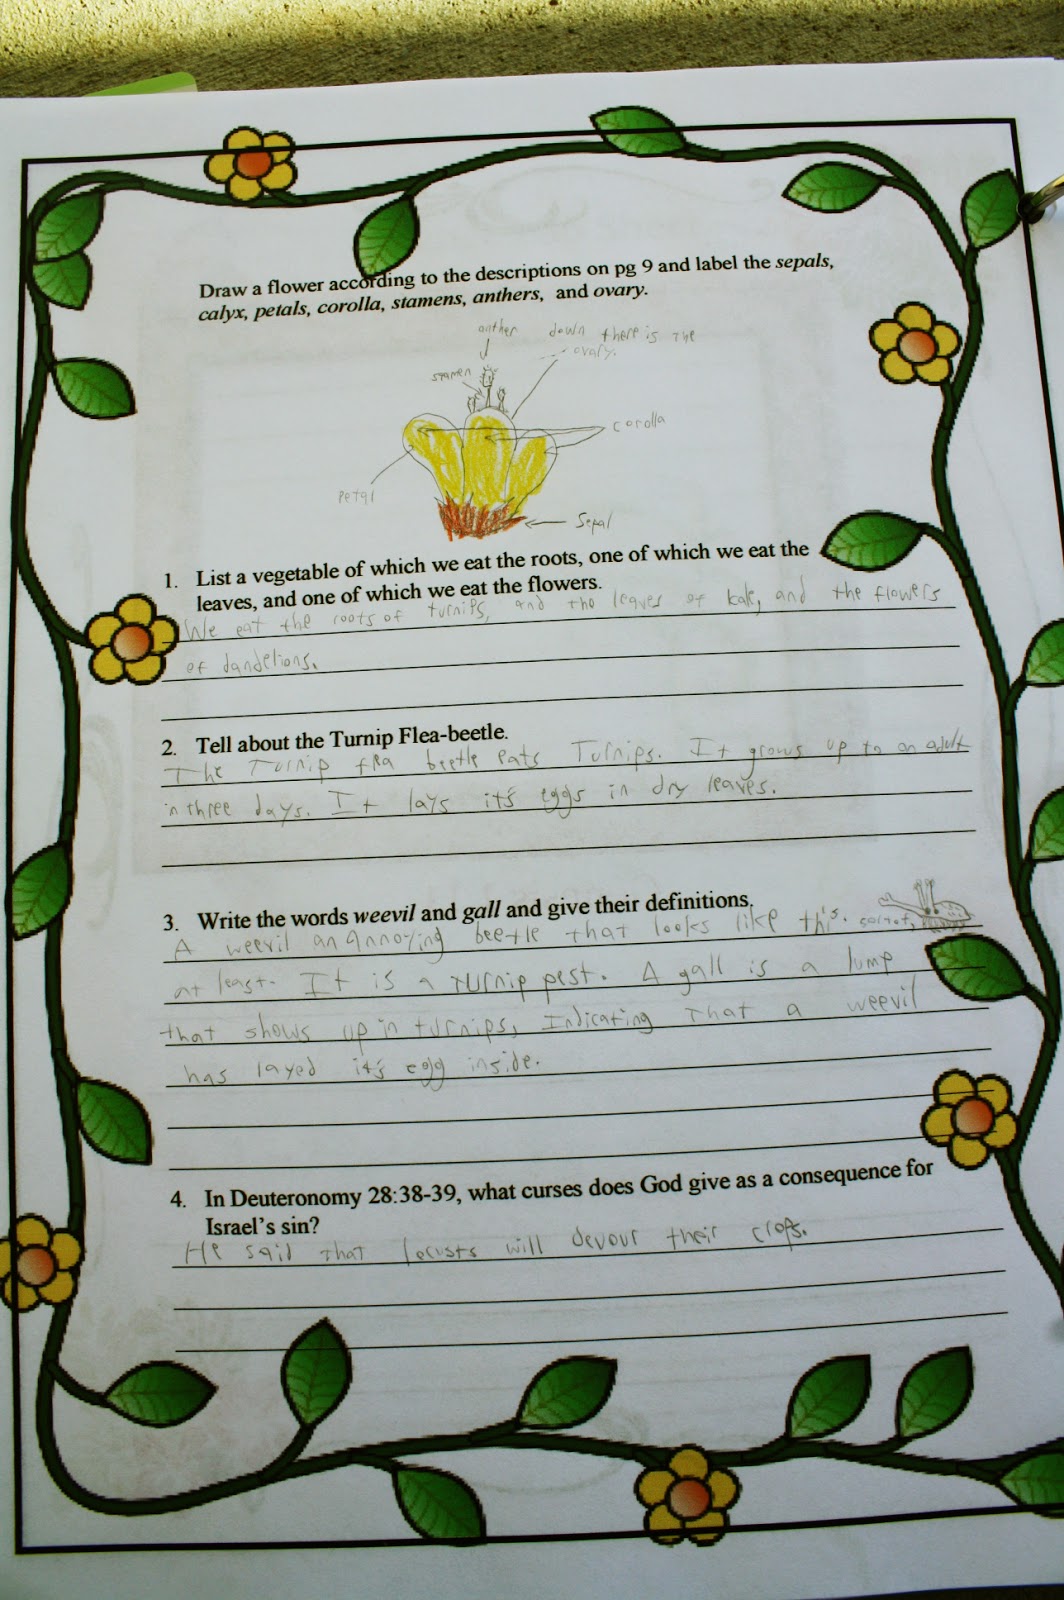 Draw a flower according to the descriptions on pg 9 and label the sepals,
calyx, petals, corolla, stamens, anthers, and ovary.
anther
down there is the
ovary.
stamen
corolla
Petal
Sepal
1. List a vegetable of which we eat the roots, one of which we eat the
leaves, and one of which we eat the flowers.
We eat the roots of turnips, and the leaves of kale, and the flowers
of dandelions.
2. Tell about the Turnip Flea-beetle.
The Turnip flea beetle eats Turnips. It grows up to an adult
in three days. It lays it's eggs in dry leaves.
3. Write the words weevil and gall and give their definitions.
A weevil an annoying beetle that looks like this. sortof,
at least. It is a turnip pest. A gall is a lump
that shows up in turnips, Indicating that a weevil
has layed it's egg inside.
4. In Deuteronomy 28:38-39, what curses does God give as a consequence for
Israel's sin?
He said that locusts will devour their crops.